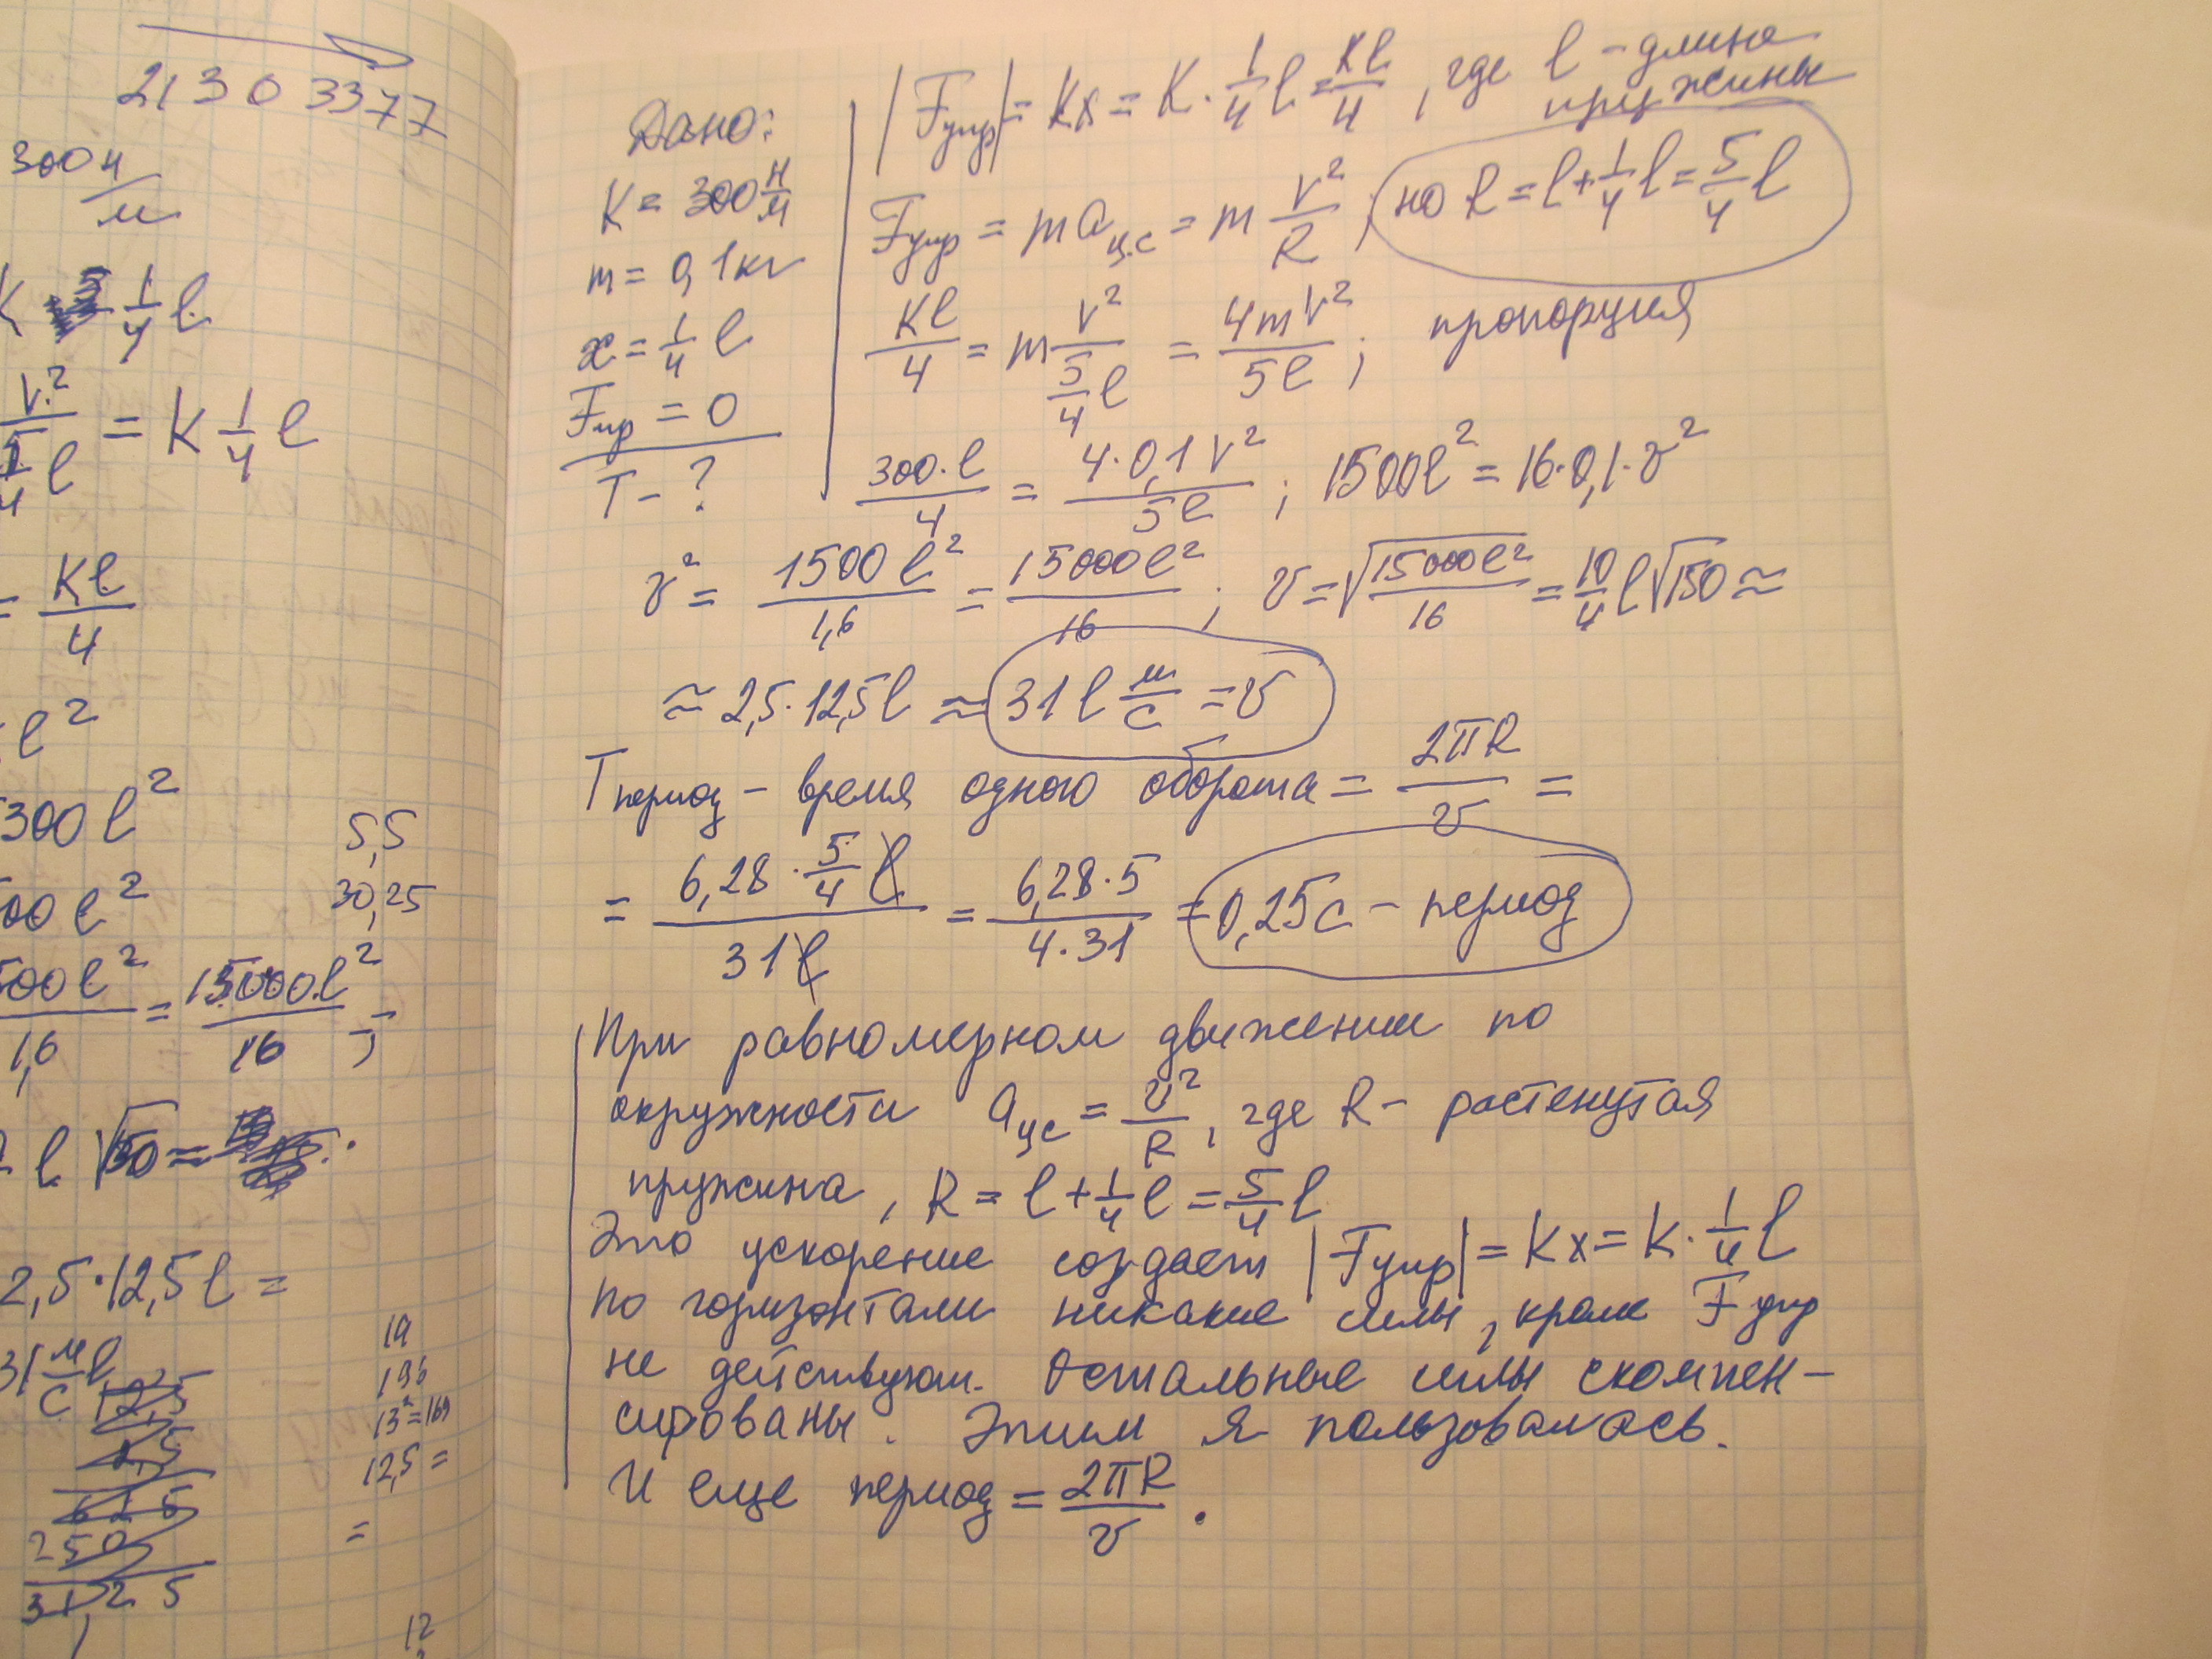 2130 3377
300 н/м
K 1/4 l
v²/(5/4 l) = K 1/4 l
= Kl/4
l²
300 l²
00 l²
500 l²/1,6 = 15000 l²/16 ;
l √150 =
2,5·12,5l =
31 м/с l
12,5
2,5
625
250
31,25
5,5
30,25
19
196
13² = 169
12,5 =
=
12
Дано:
K = 300 Н/М
m = 0,1 кг
x = 1/4 l
Fтр = 0
T - ?
|Fупр| = Kx = K · 1/4 l = Kl/4 , где l - длина
пружины
Fупр = m aц.с = m v²/R ; но R = l + 1/4 l = 5/4 l
Kl/4 = m v²/(5/4 l) = 4mv²/5l ; пропорция
300·l/4 = 4·0,1 v²/5l ; 1500l² = 16·0,1·v²
v² = 1500 l²/1,6 = 15000l²/16 ; v = √(15000l²/16) = 10/4 l √150 ≈
≈ 2,5·12,5l ≈ 31 l м/с = v
Tпериод - время одного оборота = 2πR/v =
= (6,28 · 5/4 l)/31l = 6,28·5/4·31 = 0,25с - период
При равномерном движении по
окружности aцс = v²/R , где R - растенутая
пружина , R = l + 1/4 l = 5/4 l
Это ускорение создает |Fупр| = Kx = K · 1/4 l
по горизонтали никакие силы , кроме Fупр
не действуют. Остальные силы скомпен-
сированы . Этим я пользовалась.
И еще период = 2πR/v .